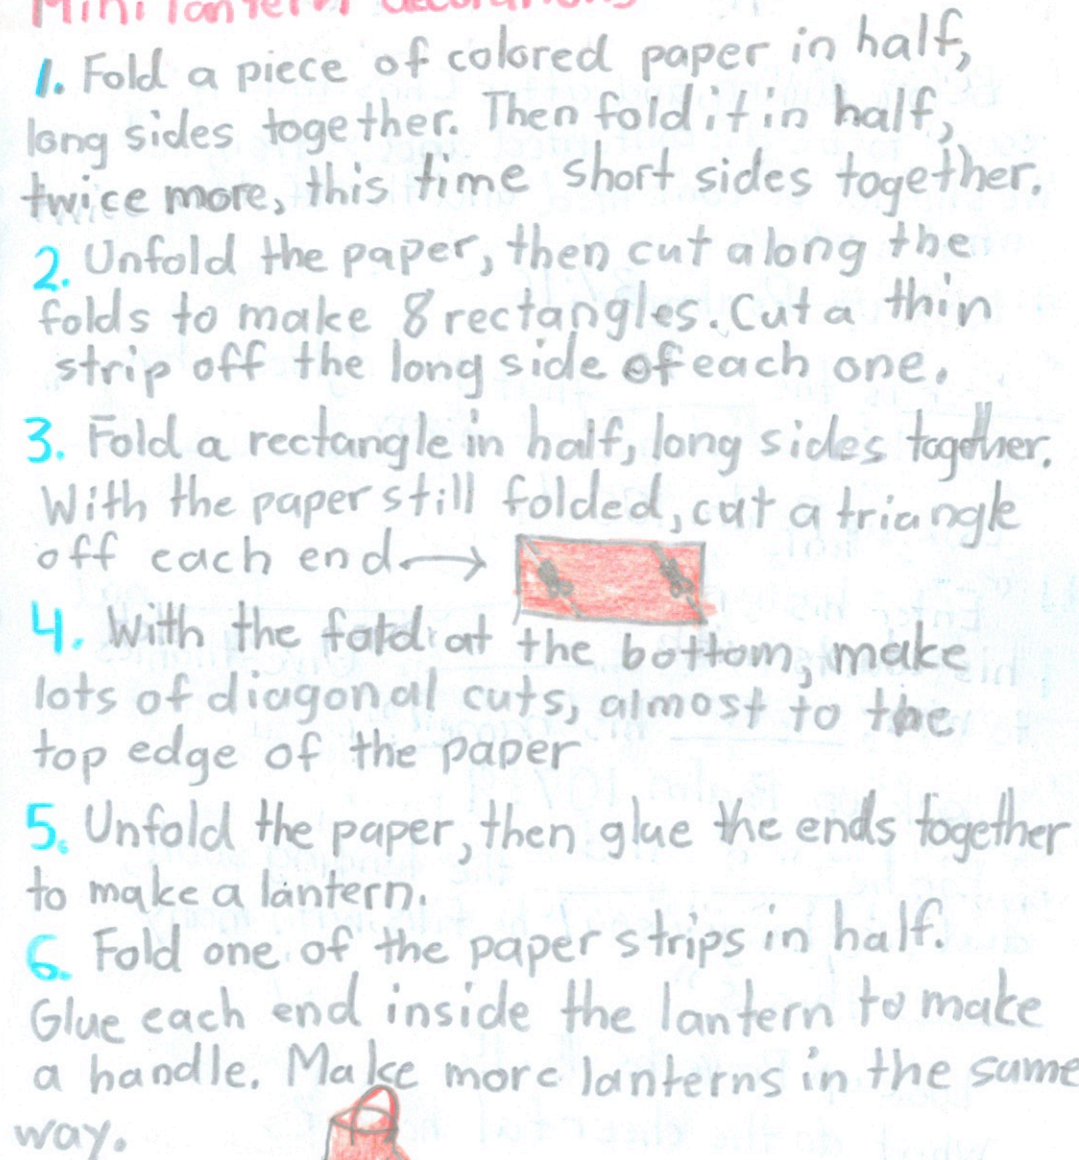 Mini lantern decorations
1. Fold a piece of colored paper in half,
long sides together. Then fold it in half,
twice more, this time short sides together.
2. Unfold the paper, then cut along the
folds to make 8 rectangles. Cut a thin
strip off the long side of each one.
3. Fold a rectangle in half, long sides together.
With the paper still folded, cut a triangle
off each end →
4. With the fold at the bottom, make
lots of diagonal cuts, almost to the
top edge of the paper
5. Unfold the paper, then glue the ends together
to make a lantern.
6. Fold one of the paper strips in half.
Glue each end inside the lantern to make
a handle. Make more lanterns in the same
way.